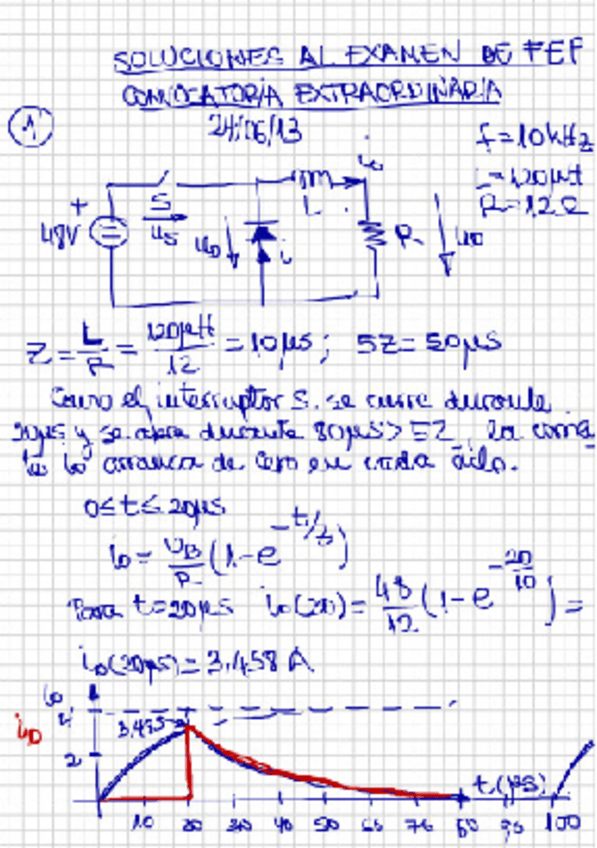 SOLUCIONES AL EXAMEN DE FEF
CONVOCATORIA EXTRAORDINARIA
1
24/06/13
f=10kHz
L=120μH
R=12Ω
io
+
48V
S
us
uD
i
L
R
uo
Z = L/R = 120μH/12 = 10μs; 5Z = 50μs
Como el interruptor S. se cierra durante
20μs y se abra durante 80μs > 5Z, la corrien
te io arranca de cero en cada ciclo.
0≤t≤20μs
io = UB/R (1-e^-t/z)
Para t=20μs io(20) = 48/12 (1-e^-20/10) =
io(20μs) = 3.458 A
io
iD
4
3.435
2
t(μs)
10 20 30 40 50 60 70 80 95 100